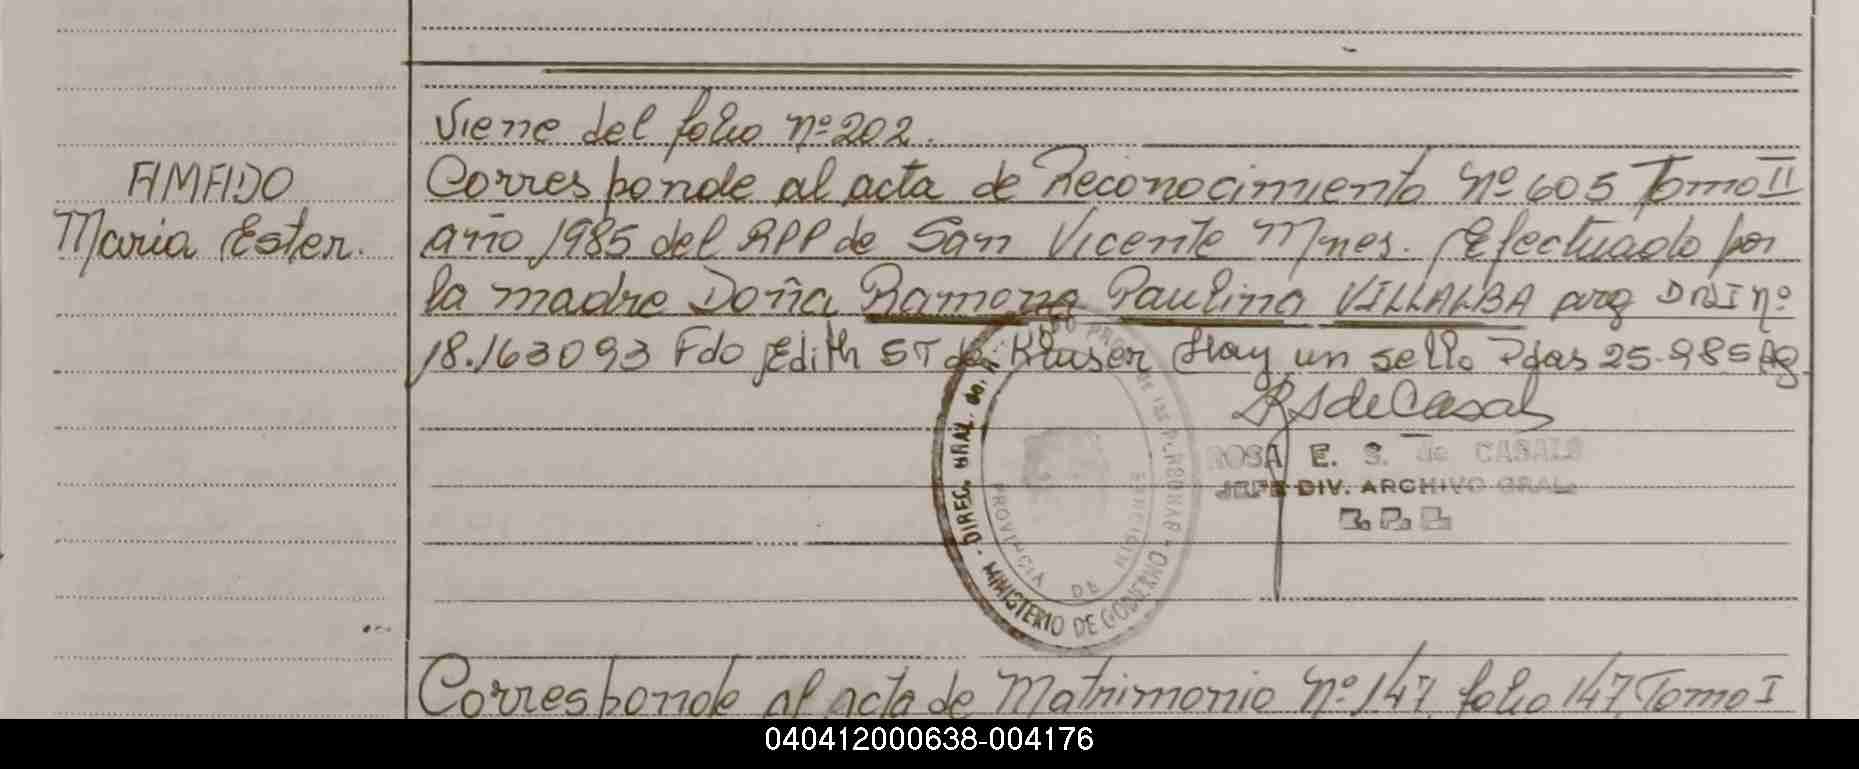 Viene del folio nº 202.
AMADO
Maria Ester.
Corresponde al acta de Reconocimiento Nº 605 Tomo II
año 1985 del RPP de San Vicente Mnes. Efectuado por
la madre Doña Ramona Paulina VILLALBA arg DNI nº
18.163093 Fdo Edith ST de Kluser Hay un sello Pdas 25-985
RSdeCasals
ROSA E. S. de CASALS
JEFE DIV. ARCHIVO GRAL.
R. P. P.
DIREC. GRAL. DE LAS PERSONAS
MINISTERIO DE GOBIERNO
PROVINCIA DE MISIONES
Corresponde al acta de Matrimonio Nº 147 folio 147 Tomo I
040412000638-004176